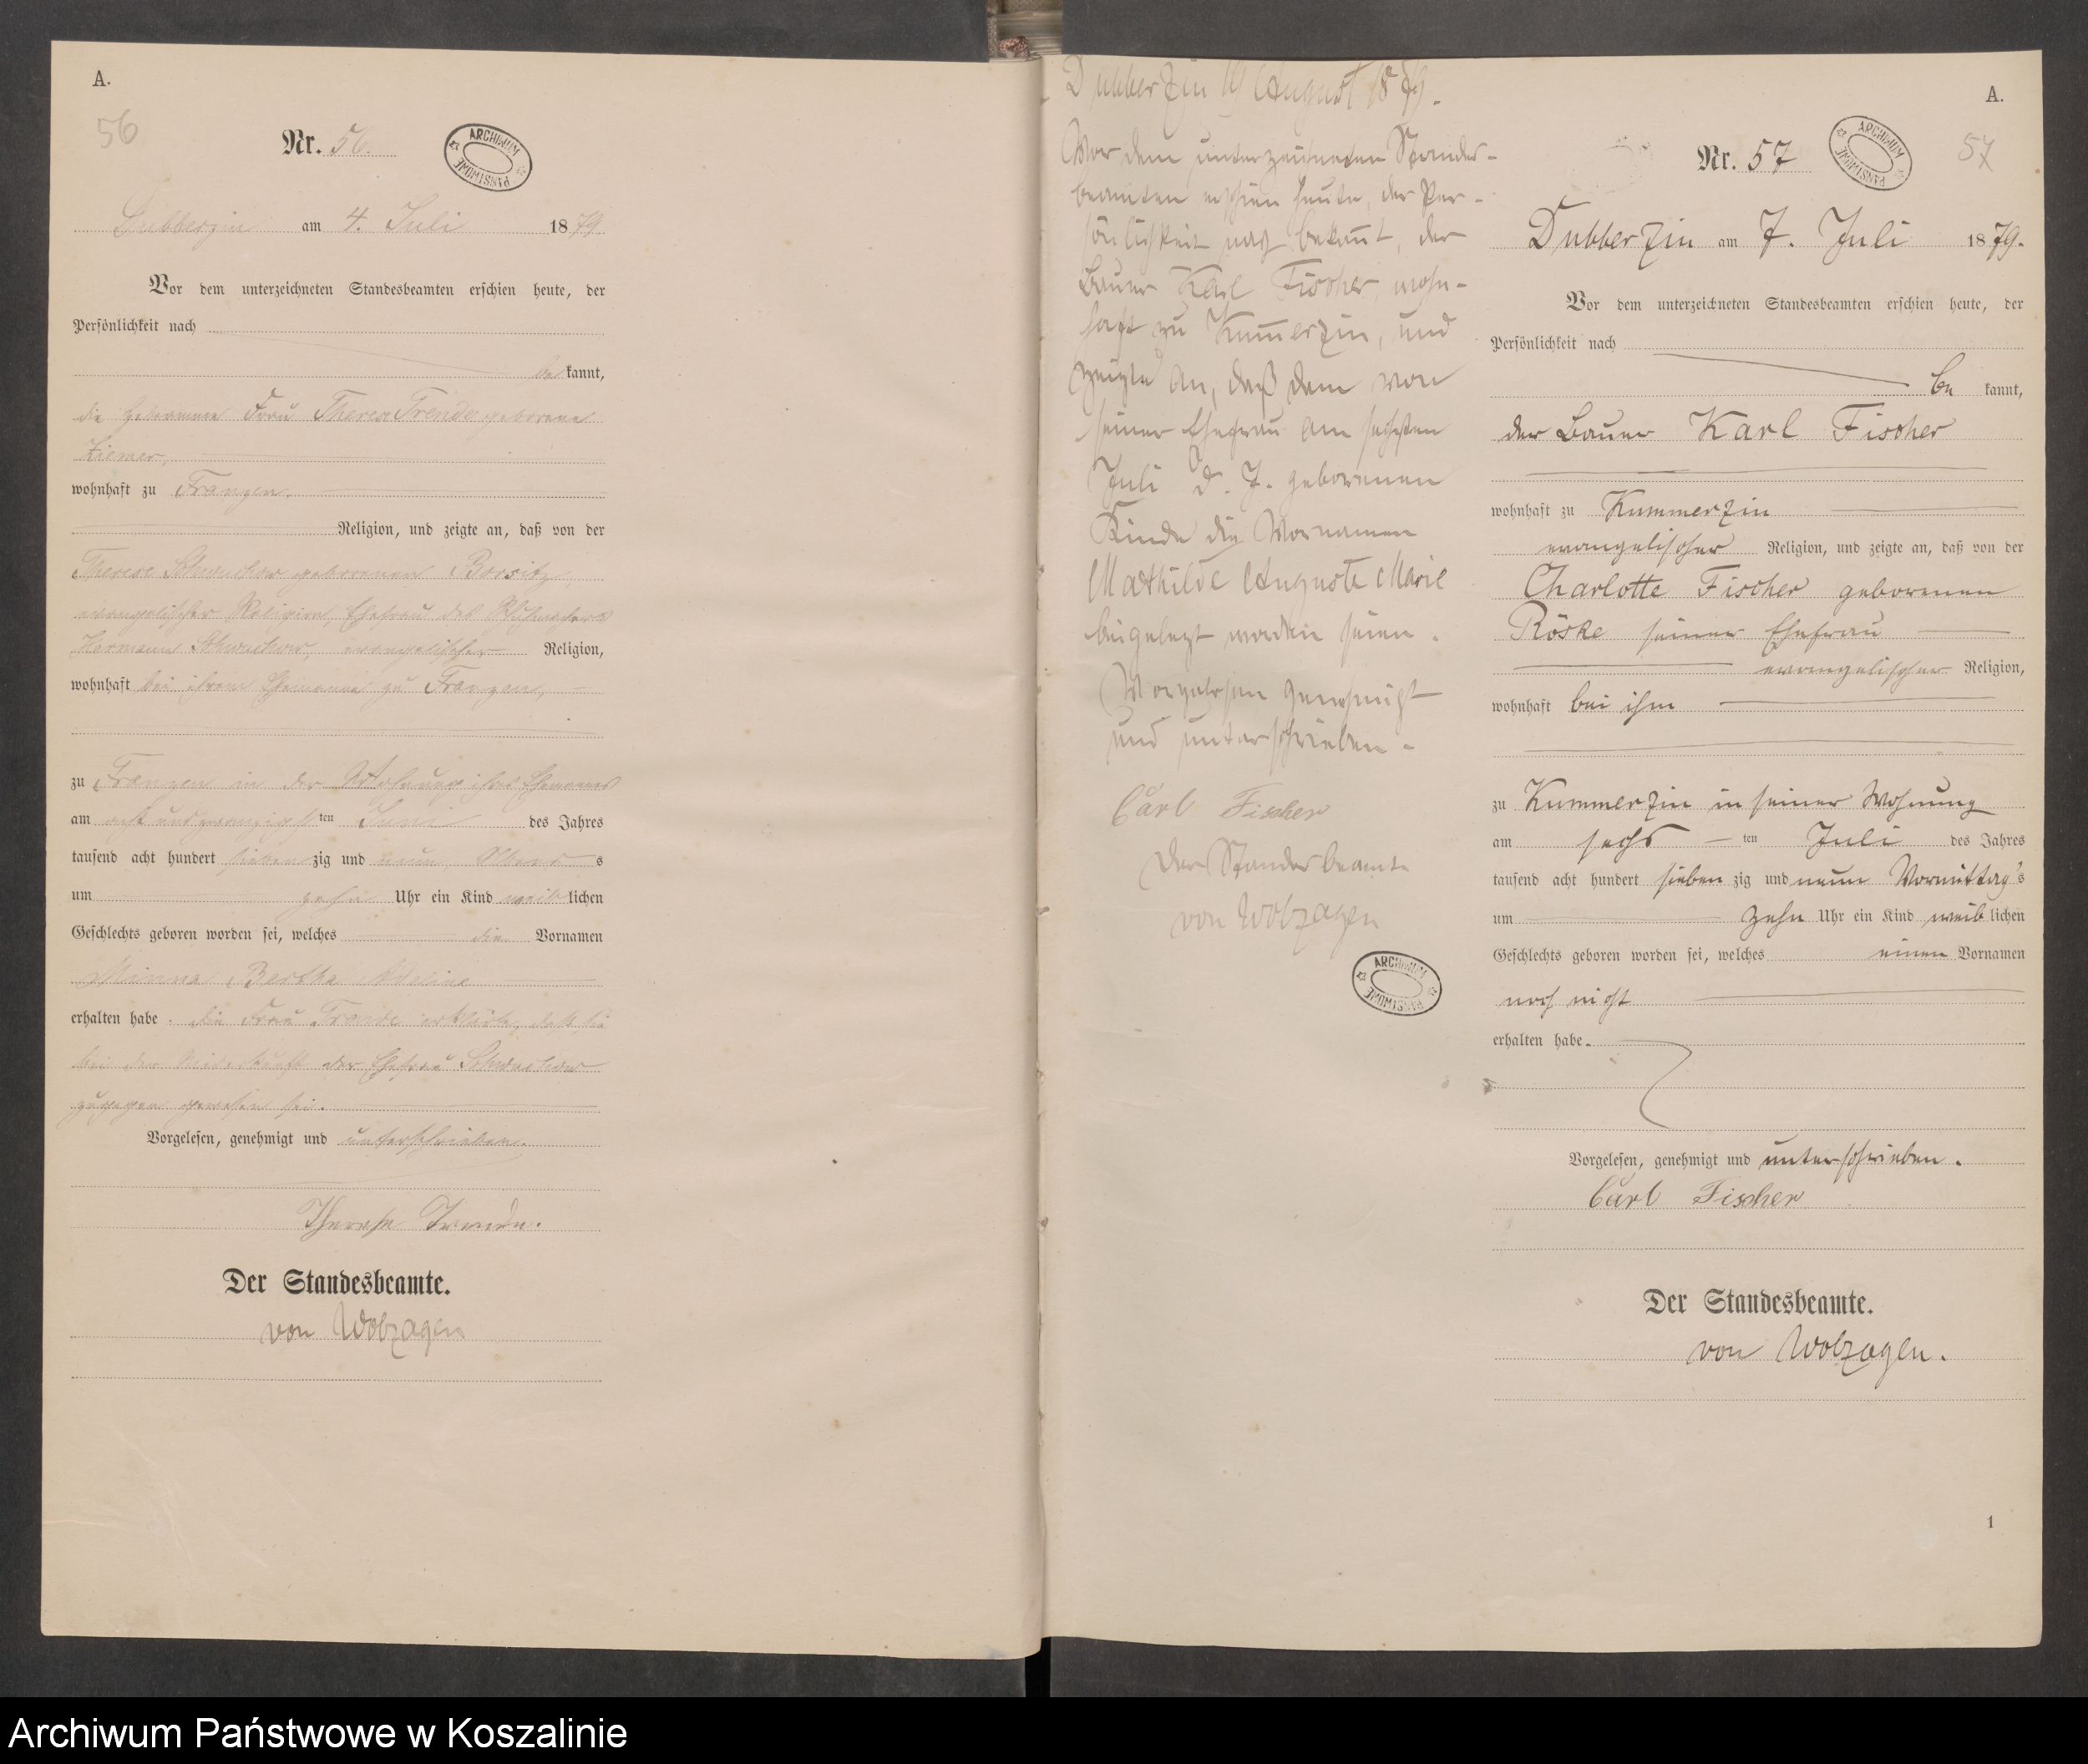 A.
56
Nr. 56.
ARCHIWUM PAŃSTWOWE
Dubberzin am 4. Juli 1879.
Vor dem unterzeichneten Standesbeamten erschien heute, der
Persönlichkeit nach
bekannt,
die Hebamme Frau Therese Trende geborene
Ziemer,
wohnhaft zu Franzen.
Religion, und zeigte an, daß von der
Therese Schwuchow geborenen
evangelischer Religion, Ehefrau des
Hermann Schwuchow, evangelischer Religion,
wohnhaft bei ihrem Ehemanne zu Franzen,
zu Franzen in der Wohnung ihres Ehemannes
am acht und zwanzigsten Juni des Jahres
tausend acht hundert siebenzig und neun, Abends
um zehn Uhr ein Kind weiblichen
Geschlechts geboren worden sei, welches die Vornamen
Minna Bertha
erhalten habe. die Frau Trende erklärte, daß sie
bei der Niederkunft der Ehefrau Schwuchow
zugegen gewesen sei.
Vorgelesen, genehmigt und unterschrieben.
Therese Trende.
Der Standesbeamte.
von Wolzogen
Dubberzin August 1879.
Vor dem unterzeichneten Standes-
beamten erschien heute, der Per-
sönlichkeit nach bekannt, der
Bauer Karl Fischer, wohn-
haft zu Kummerzin, und
zeigte an, daß dem von
seiner Ehefrau am sechsten
Juli d. J. geborenen
Kinde die Vornamen
Mathilde Auguste Marie
beigelegt worden seien.
Vorgelesen genehmigt
und unterschrieben.
Carl Fischer
Der Standesbeamte
von Wolzogen
ARCHIWUM PAŃSTWOWE
A.
57
Nr. 57
ARCHIWUM PAŃSTWOWE
Dubberzin am 7. Juli 1879.
Vor dem unterzeichneten Standesbeamten erschien heute, der
Persönlichkeit nach
be kannt,
der Bauer Karl Fischer
wohnhaft zu Kummerzin
evangelischer Religion, und zeigte an, daß von der
Charlotte Fischer geborenen
Röske seiner Ehefrau
evangelischer Religion,
wohnhaft bei ihm
zu Kummerzin in seiner Wohnung
am sechs ten Juli des Jahres
tausend acht hundert sieben zig und neun Vormittags
um zehn Uhr ein Kind weiblichen
Geschlechts geboren worden sei, welches einen Vornamen
noch nicht
erhalten habe.
Vorgelesen, genehmigt und unterschrieben.
Carl Fischer
Der Standesbeamte.
von Wolzogen.
1
Archiwum Państwowe w Koszalinie